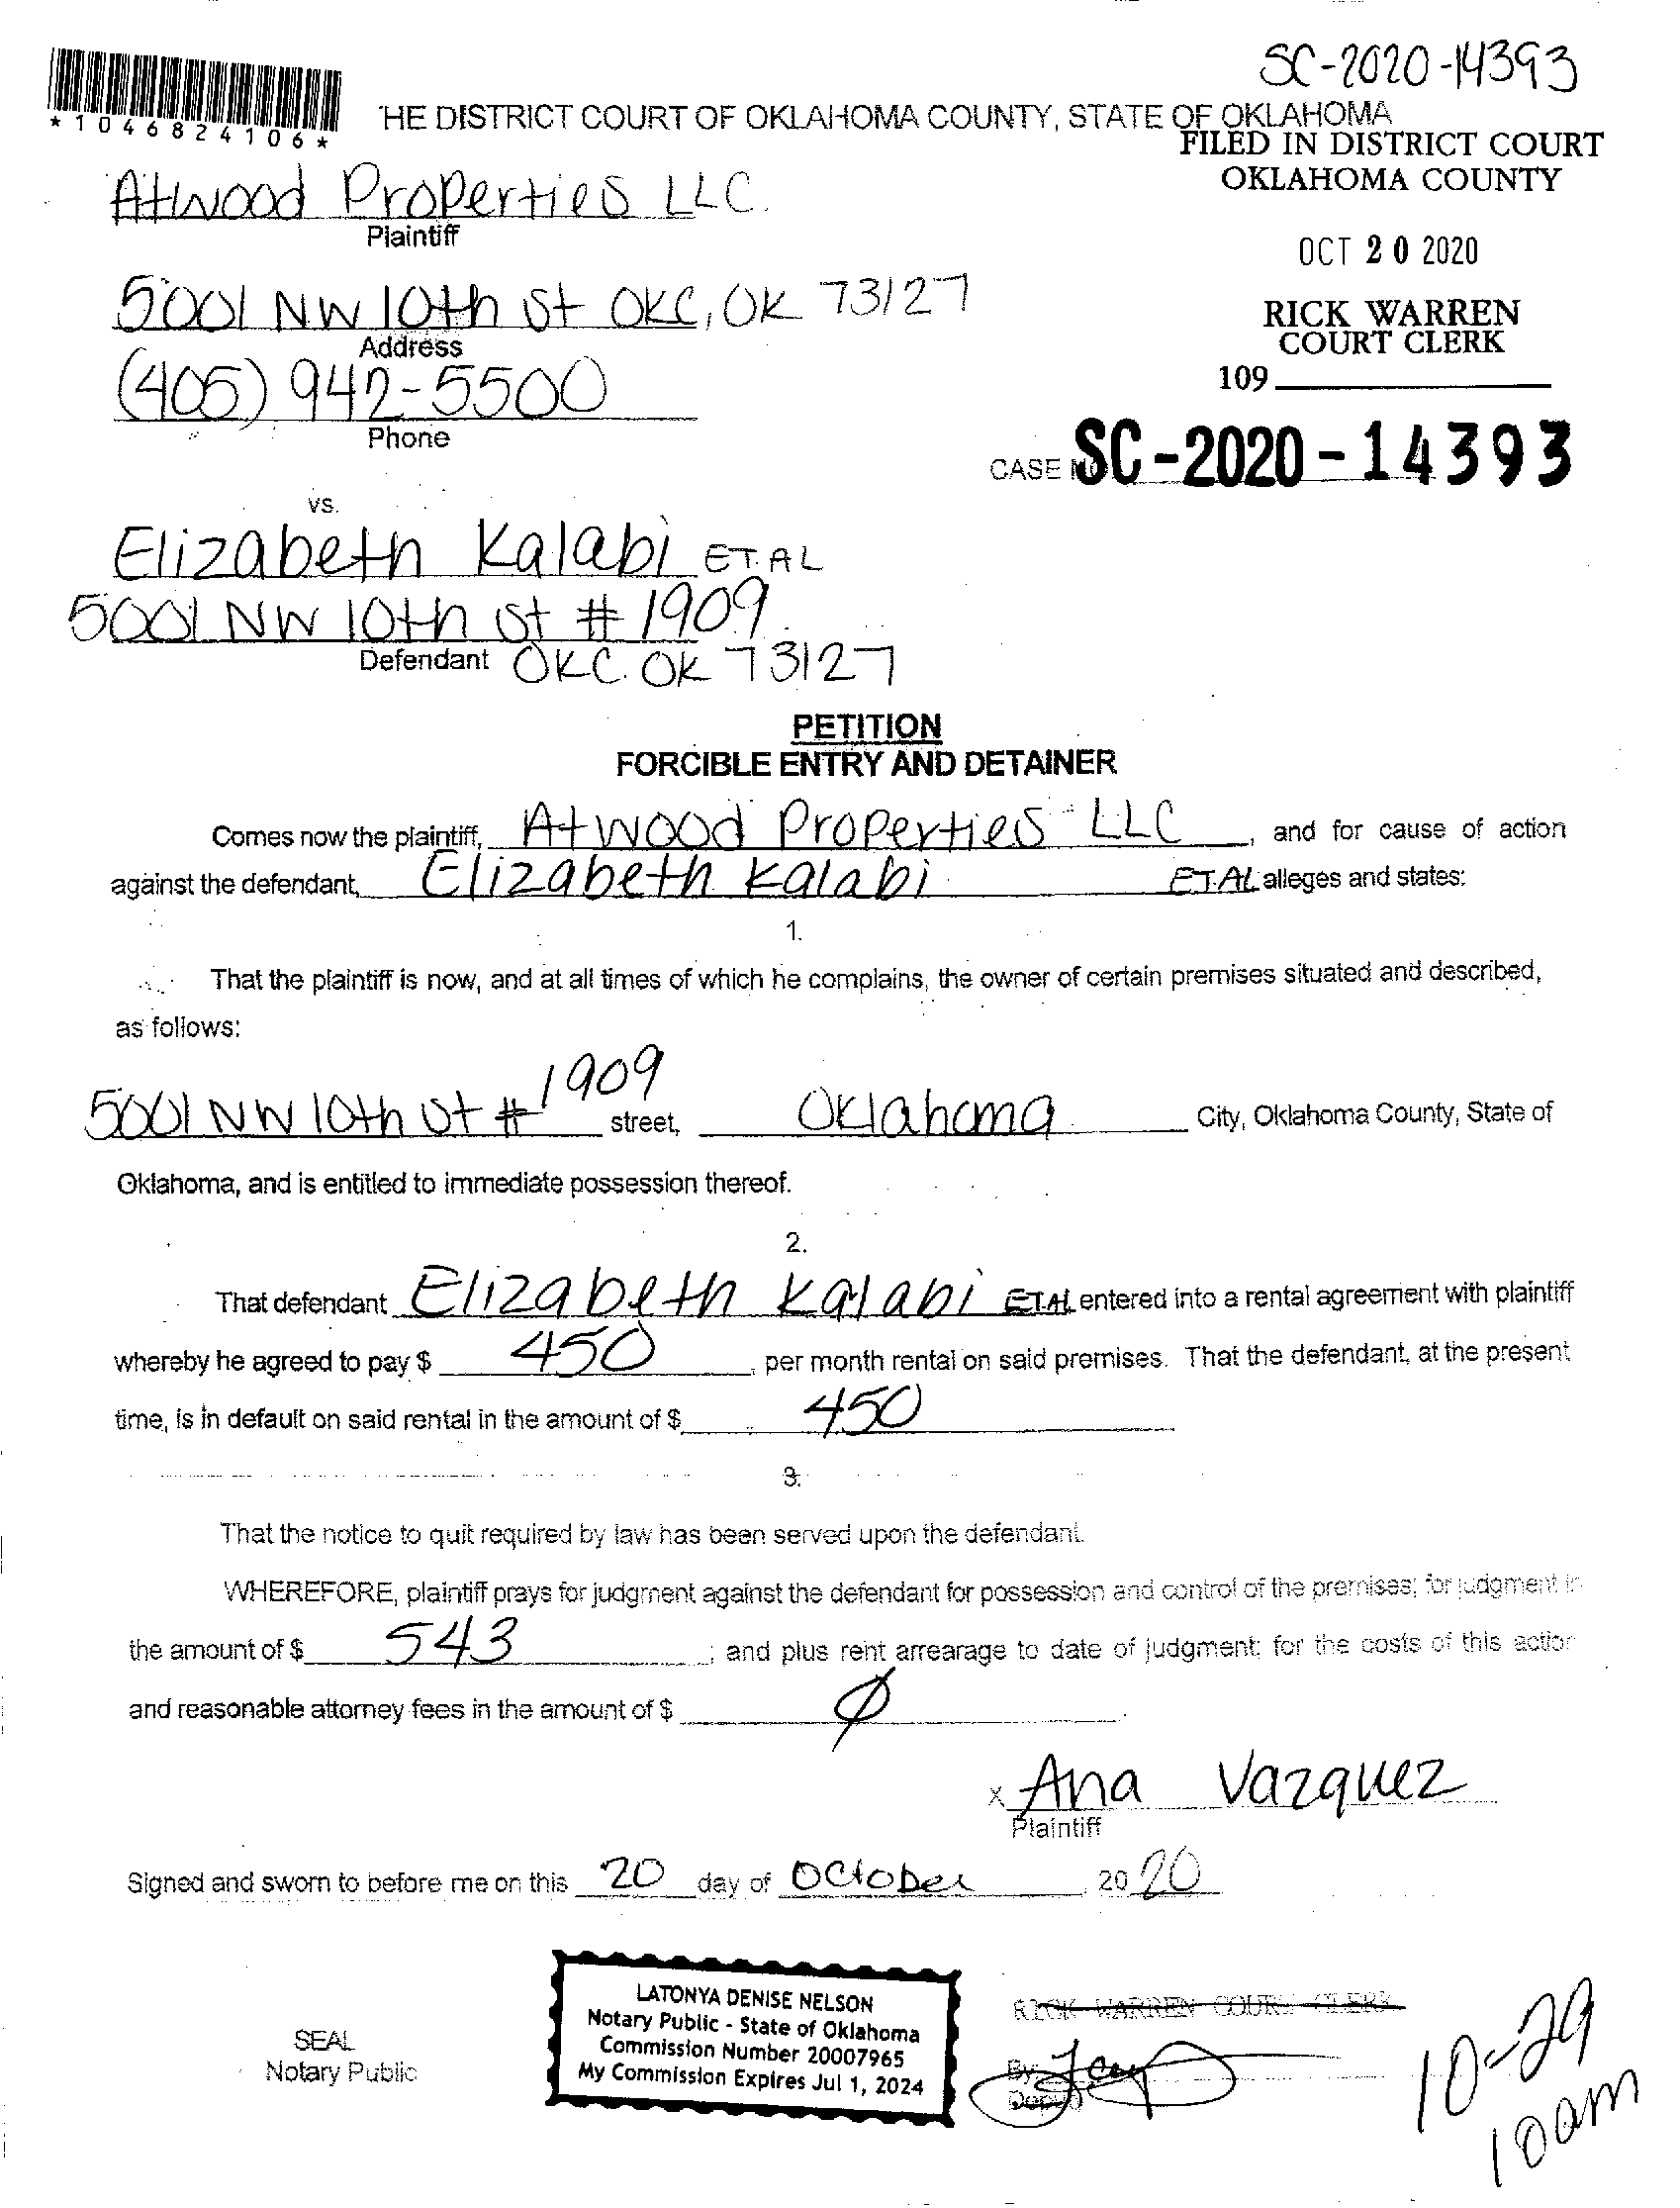 SC-2020-14393
*1046824106*
'HE DISTRICT COURT OF OKLAHOMA COUNTY, STATE OF OKLAHOMA
FILED IN DISTRICT COURT
OKLAHOMA COUNTY
Atwood Properties LLC.
Plaintiff
OCT 20 2020
5001 NW 10th St OKC, OK 73127
Address
RICK WARREN
COURT CLERK
(405) 942-5500
Phone
109
CASE NO SC-2020-14393
vs.
Elizabeth Kalabi ET.AL
5001 NW 10th St # 1909
Defendant OKC. OK 73127
PETITION
FORCIBLE ENTRY AND DETAINER
Comes now the plaintiff, Atwood Properties LLC, and for cause of action
against the defendant, Elizabeth Kalabi ET.AL alleges and states:
1.
That the plaintiff is now, and at all times of which he complains, the owner of certain premises situated and described,
as follows:
5001 NW 10th St # 1909 street, Oklahoma City, Oklahoma County, State of
Oklahoma, and is entitled to immediate possession thereof.
2.
That defendant Elizabeth Kalabi ET.AL entered into a rental agreement with plaintiff
whereby he agreed to pay $ 450, per month rental on said premises. That the defendant, at the present
time, is in default on said rental in the amount of $ 450
3.
That the notice to quit required by law has been served upon the defendant.
WHEREFORE, plaintiff prays for judgment against the defendant for possession and control of the premises; for judgment in
the amount of $ 543; and plus rent arrearage to date of judgment; for the costs of this action
and reasonable attorney fees in the amount of $ Ø
x Ana Vazquez
Plaintiff
Signed and sworn to before me on this 20 day of October, 2020
LATONYA DENISE NELSON
Notary Public - State of Oklahoma
Commission Number 20007965
My Commission Expires Jul 1, 2024
SEAL
Notary Public
RICK WARREN COURT CLERK
By:
Deputy
10-29
10am